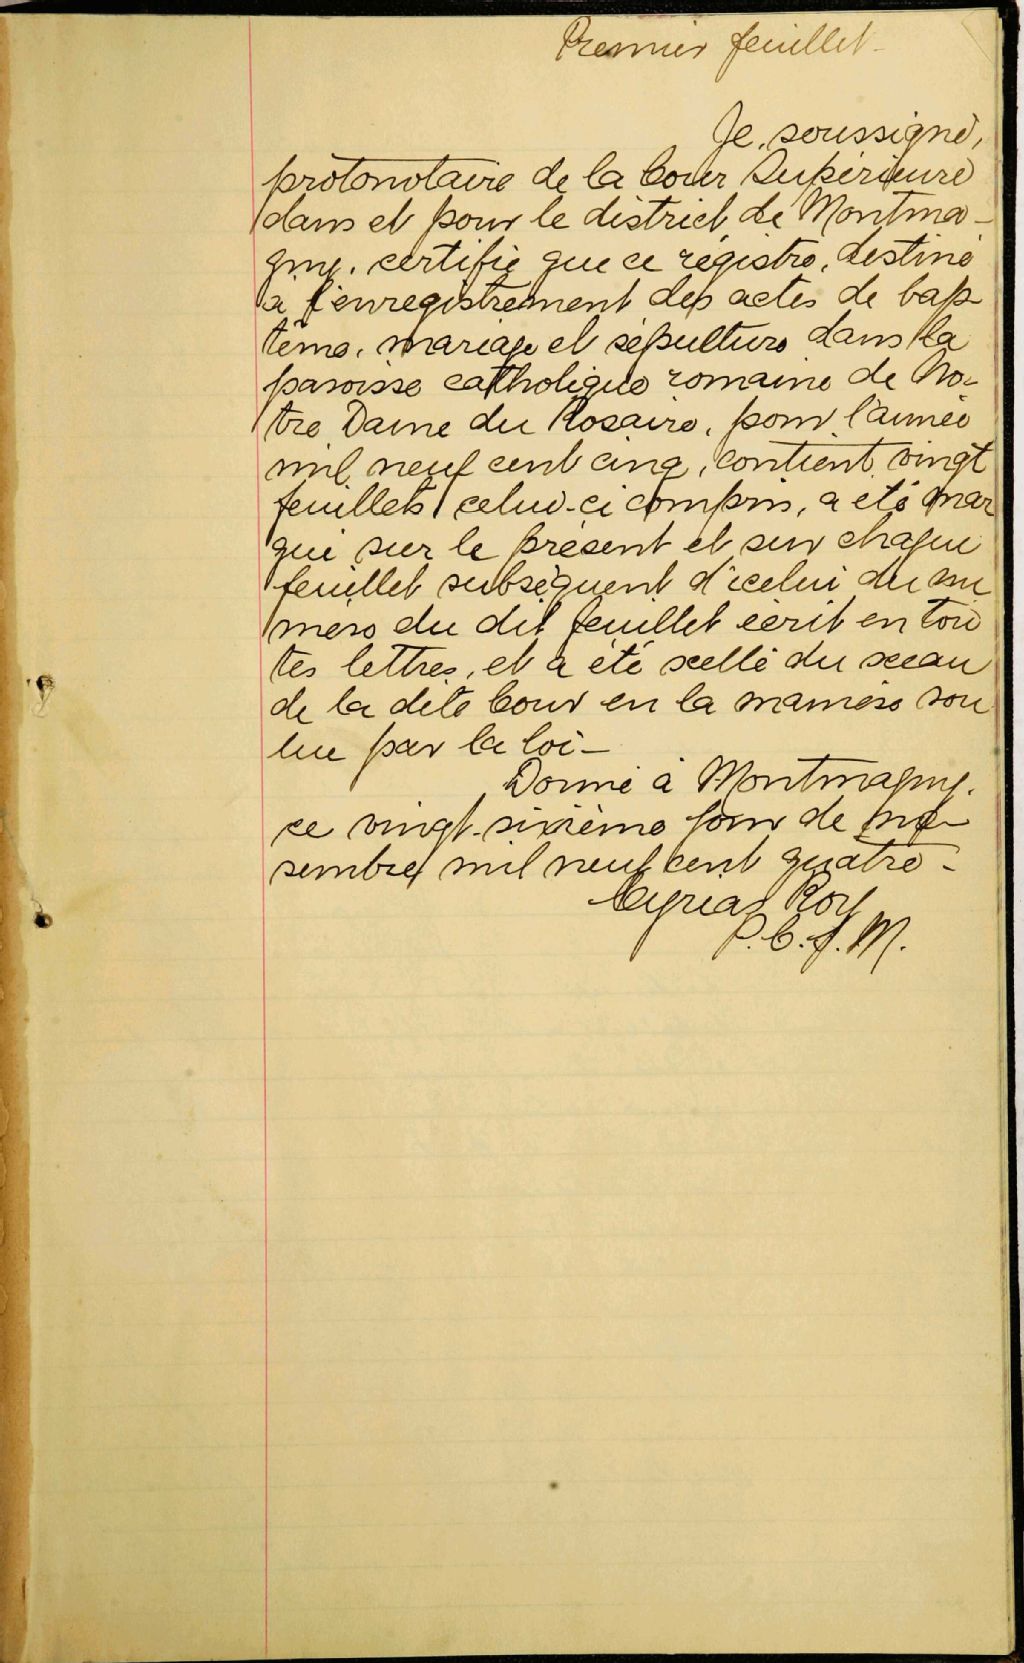 Premier feuillet-
Je, soussigné,
protonotaire de la Cour Supérieure
dans et pour le district de Montma-
gny, certifie que ce régistre, destiné
à l'enregistrement des actes de bap-
tême, mariage et sépulture dans la
paroisse catholique romaine de No-
tre Dame du Rosaire, pour l'année
mil neuf cent cinq, contient vingt
feuillets celui-ci compris, a été mar
qué sur le présent et sur chaque
feuillet subséquent d'icelui du nu
méro du dit feuillet écrit en tou
tes lettres, et a été scellé du sceau
de la dite Cour en la manière vou
lue par la loi-
Donné à Montmagny,
ce vingt-sixième jour de no-
vembre mil neuf cent quatre-
Cyrias Roy
P. C. S. M.